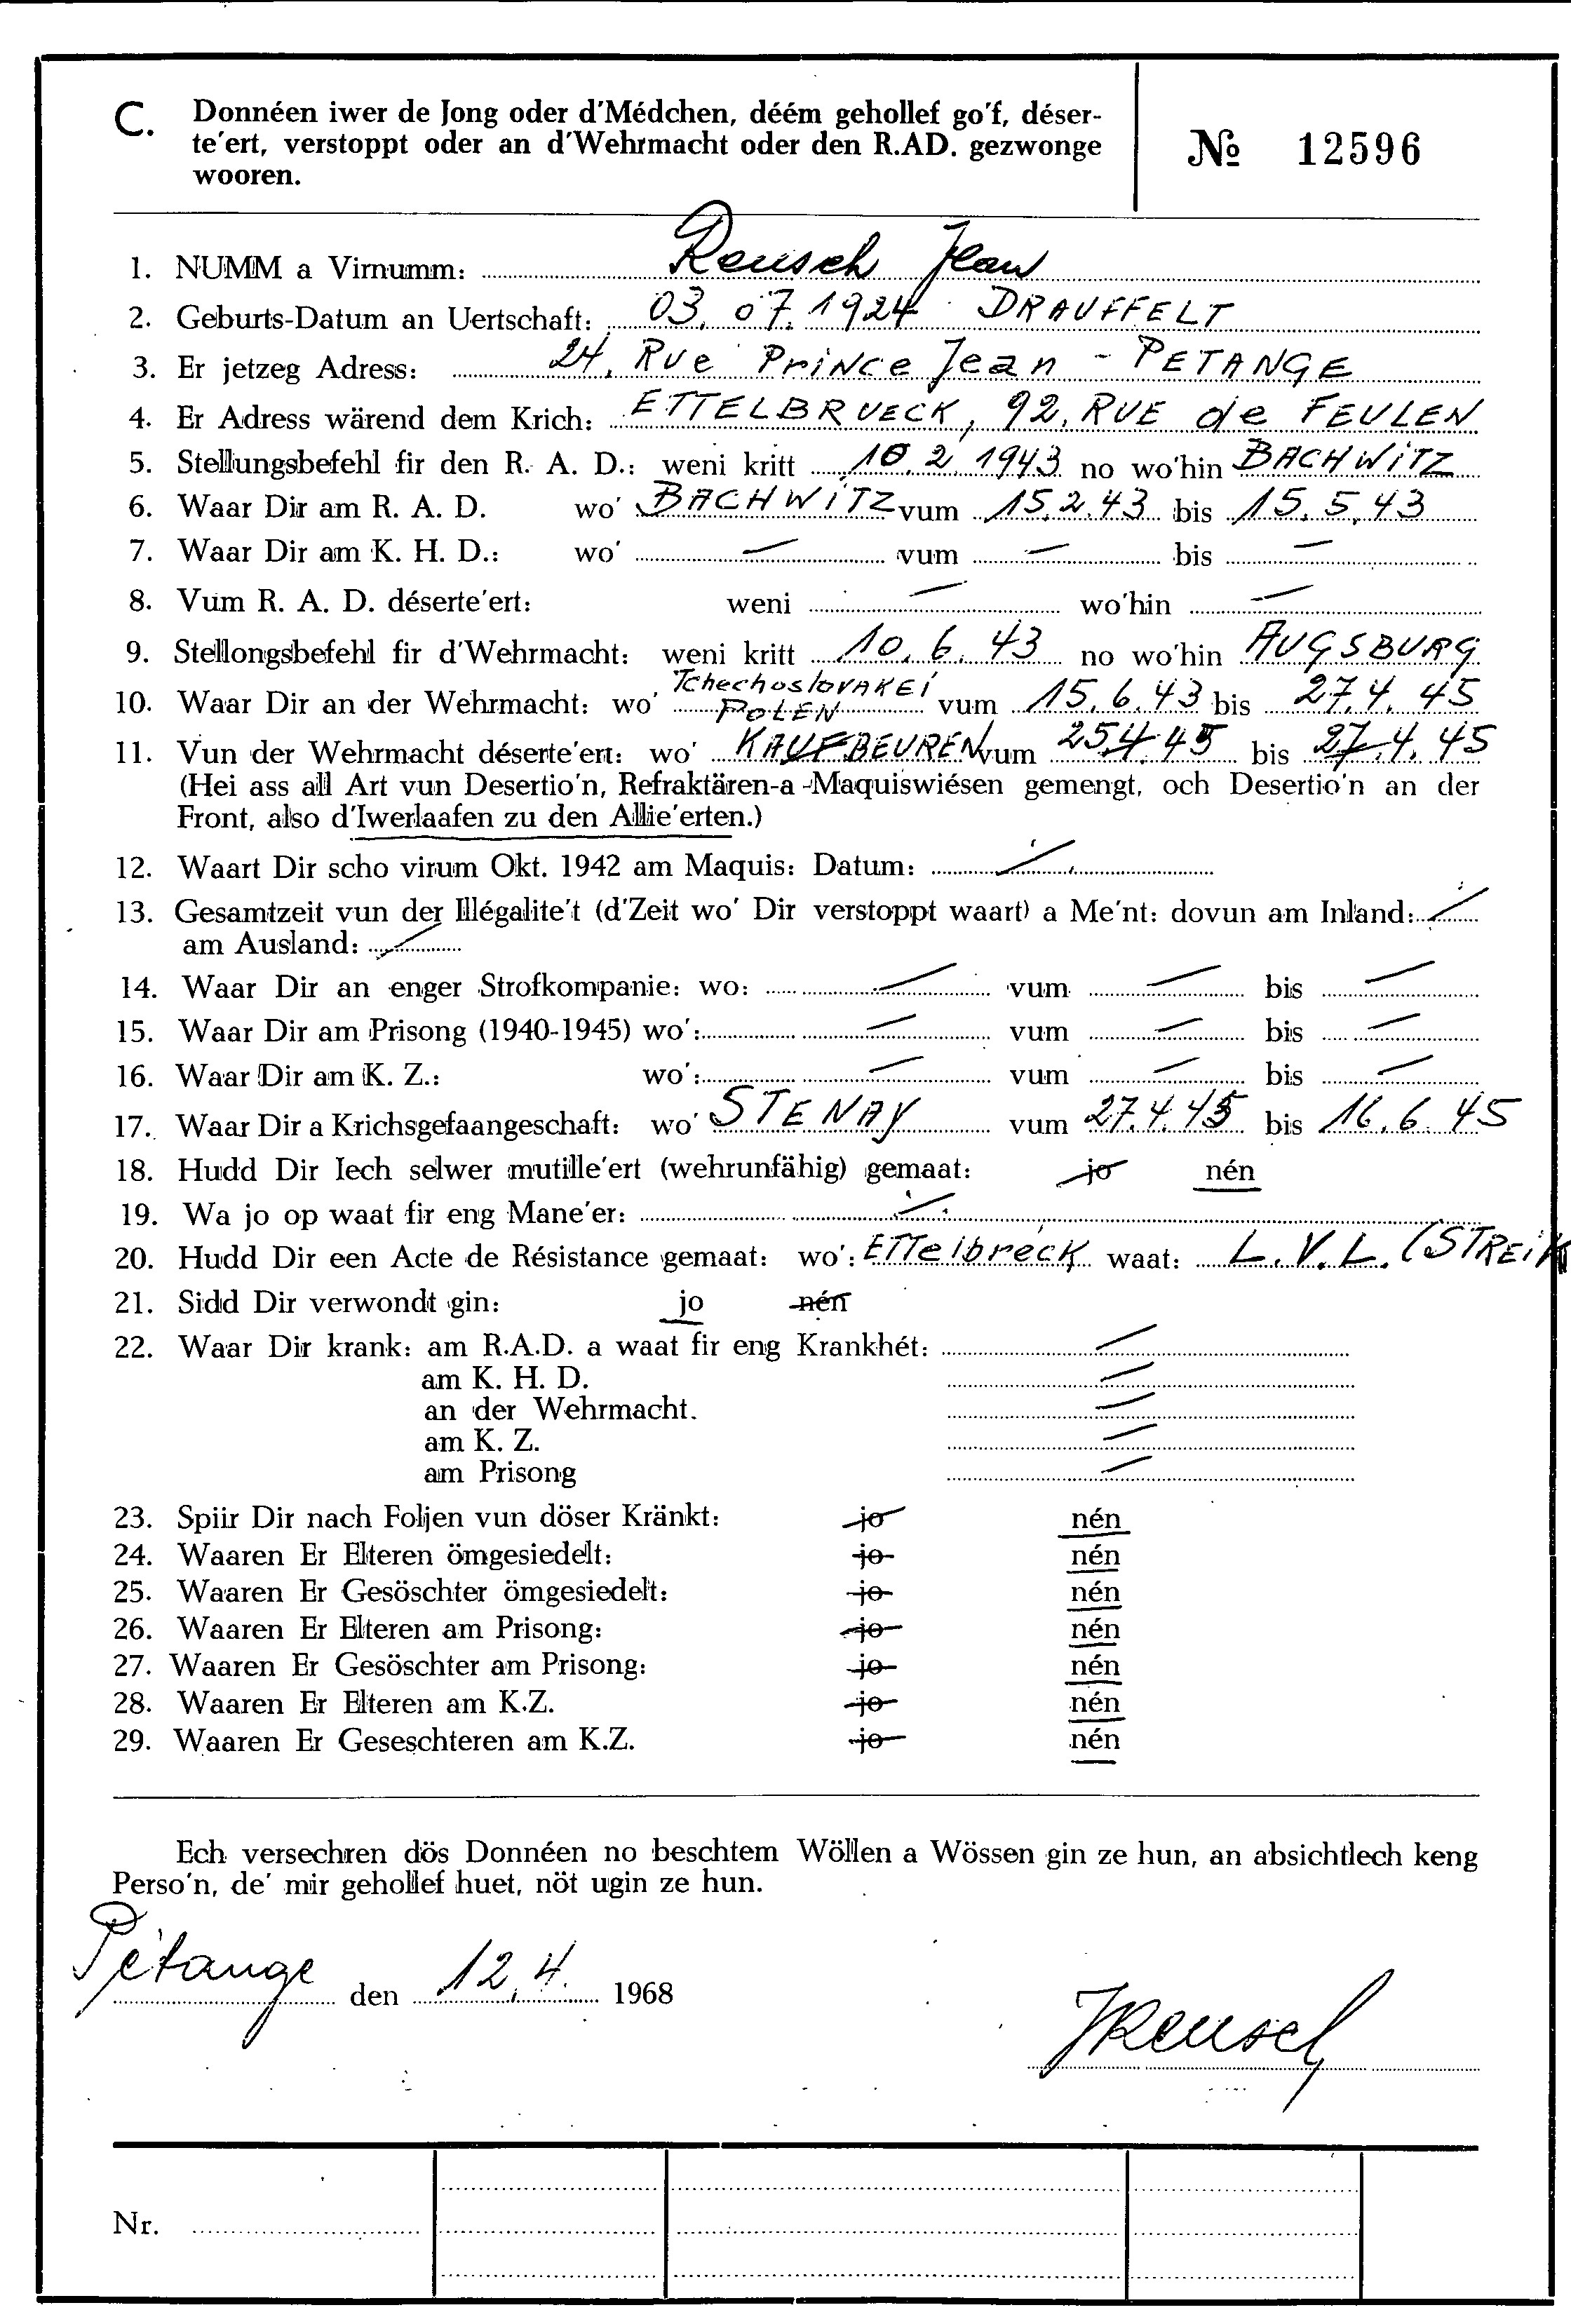 C. Donnéen iwer de Jong oder d'Médchen, déém gehollef go'f, déser-
te'ert, verstoppt oder an d'Wehrmacht oder den R.AD. gezwonge
wooren.
№ 12596
1. NUMM a Virnumm: Reusch Jean
2. Geburts-Datum an Uertschaft: 03.07.1924 DRAUFFELT
3. Er jetzeg Adress: 24, Rue Prince Jean - PETANGE
4. Er Adress wärend dem Krich: ETTELBRUECK, 92, RUE de FEULEN
5. Stellungsbefehl fir den R. A. D.: weni kritt 10.2.1943 no wo'hin BACHWITZ
6. Waar Dir am R. A. D. wo' BACHWITZ vum 15.2.43 bis 15.5.43
7. Waar Dir am K. H. D.: wo' — vum — bis —
8. Vum R. A. D. déserte'ert: weni — wo'hin —
9. Stellongsbefehl fir d'Wehrmacht: weni kritt 10.6.43 no wo'hin AUGSBURG
10. Waar Dir an der Wehrmacht: wo' TchechoslovAKEi POLEN vum 15.6.43 bis 27.4.45
11. Vun der Wehrmacht déserte'ert: wo' KAUFBEUREN vum 25.4.45 bis 27.4.45
(Hei ass all Art vun Desertio'n, Refraktären-a-Maquiswiésen gemengt, och Desertio'n an der
Front, also d'Iwerlaafen zu den Allie'erten.)
12. Waart Dir scho virum Okt. 1942 am Maquis: Datum: —
13. Gesamtzeit vun der Illégalite't (d'Zeit wo' Dir verstoppt waart) a Me'nt: dovun am Inland: —
am Ausland: —
14. Waar Dir an enger Strofkompanie: wo: — vum — bis —
15. Waar Dir am Prisong (1940-1945) wo': — vum — bis —
16. Waar Dir am K. Z.: wo': — vum — bis —
17. Waar Dir a Krichsgefaangeschaft: wo' STENAY vum 27.4.45 bis 16.6.45
18. Hudd Dir Iech selwer mutille'ert (wehrunfähig) gemaat: jo nén
19. Wa jo op waat fir eng Mane'er: —
20. Hudd Dir een Acte de Résistance gemaat: wo': ETTelbreck waat: L.V.L. (STREIK
21. Sidd Dir verwondt gin: jo nén
22. Waar Dir krank: am R.A.D. a waat fir eng Krankhét: —
am K. H. D. —
an der Wehrmacht. —
am K. Z. —
am Prisong —
23. Spiir Dir nach Foljen vun döser Kränkt: jo nén
24. Waaren Er Elteren ömgesiedelt: jo nén
25. Waaren Er Gesöschter ömgesiedelt: jo nén
26. Waaren Er Elteren am Prisong: jo nén
27. Waaren Er Gesöschter am Prisong: jo nén
28. Waaren Er Elteren am K.Z. jo nén
29. Waaren Er Geseschteren am K.Z. jo nén
Ech versechren dös Donnéen no beschtem Wöllen a Wössen gin ze hun, an absichtlech keng
Perso'n, de' mir gehollef huet, nöt ugin ze hun.
Pétange den 12.4. 1968
JReusch
Nr.